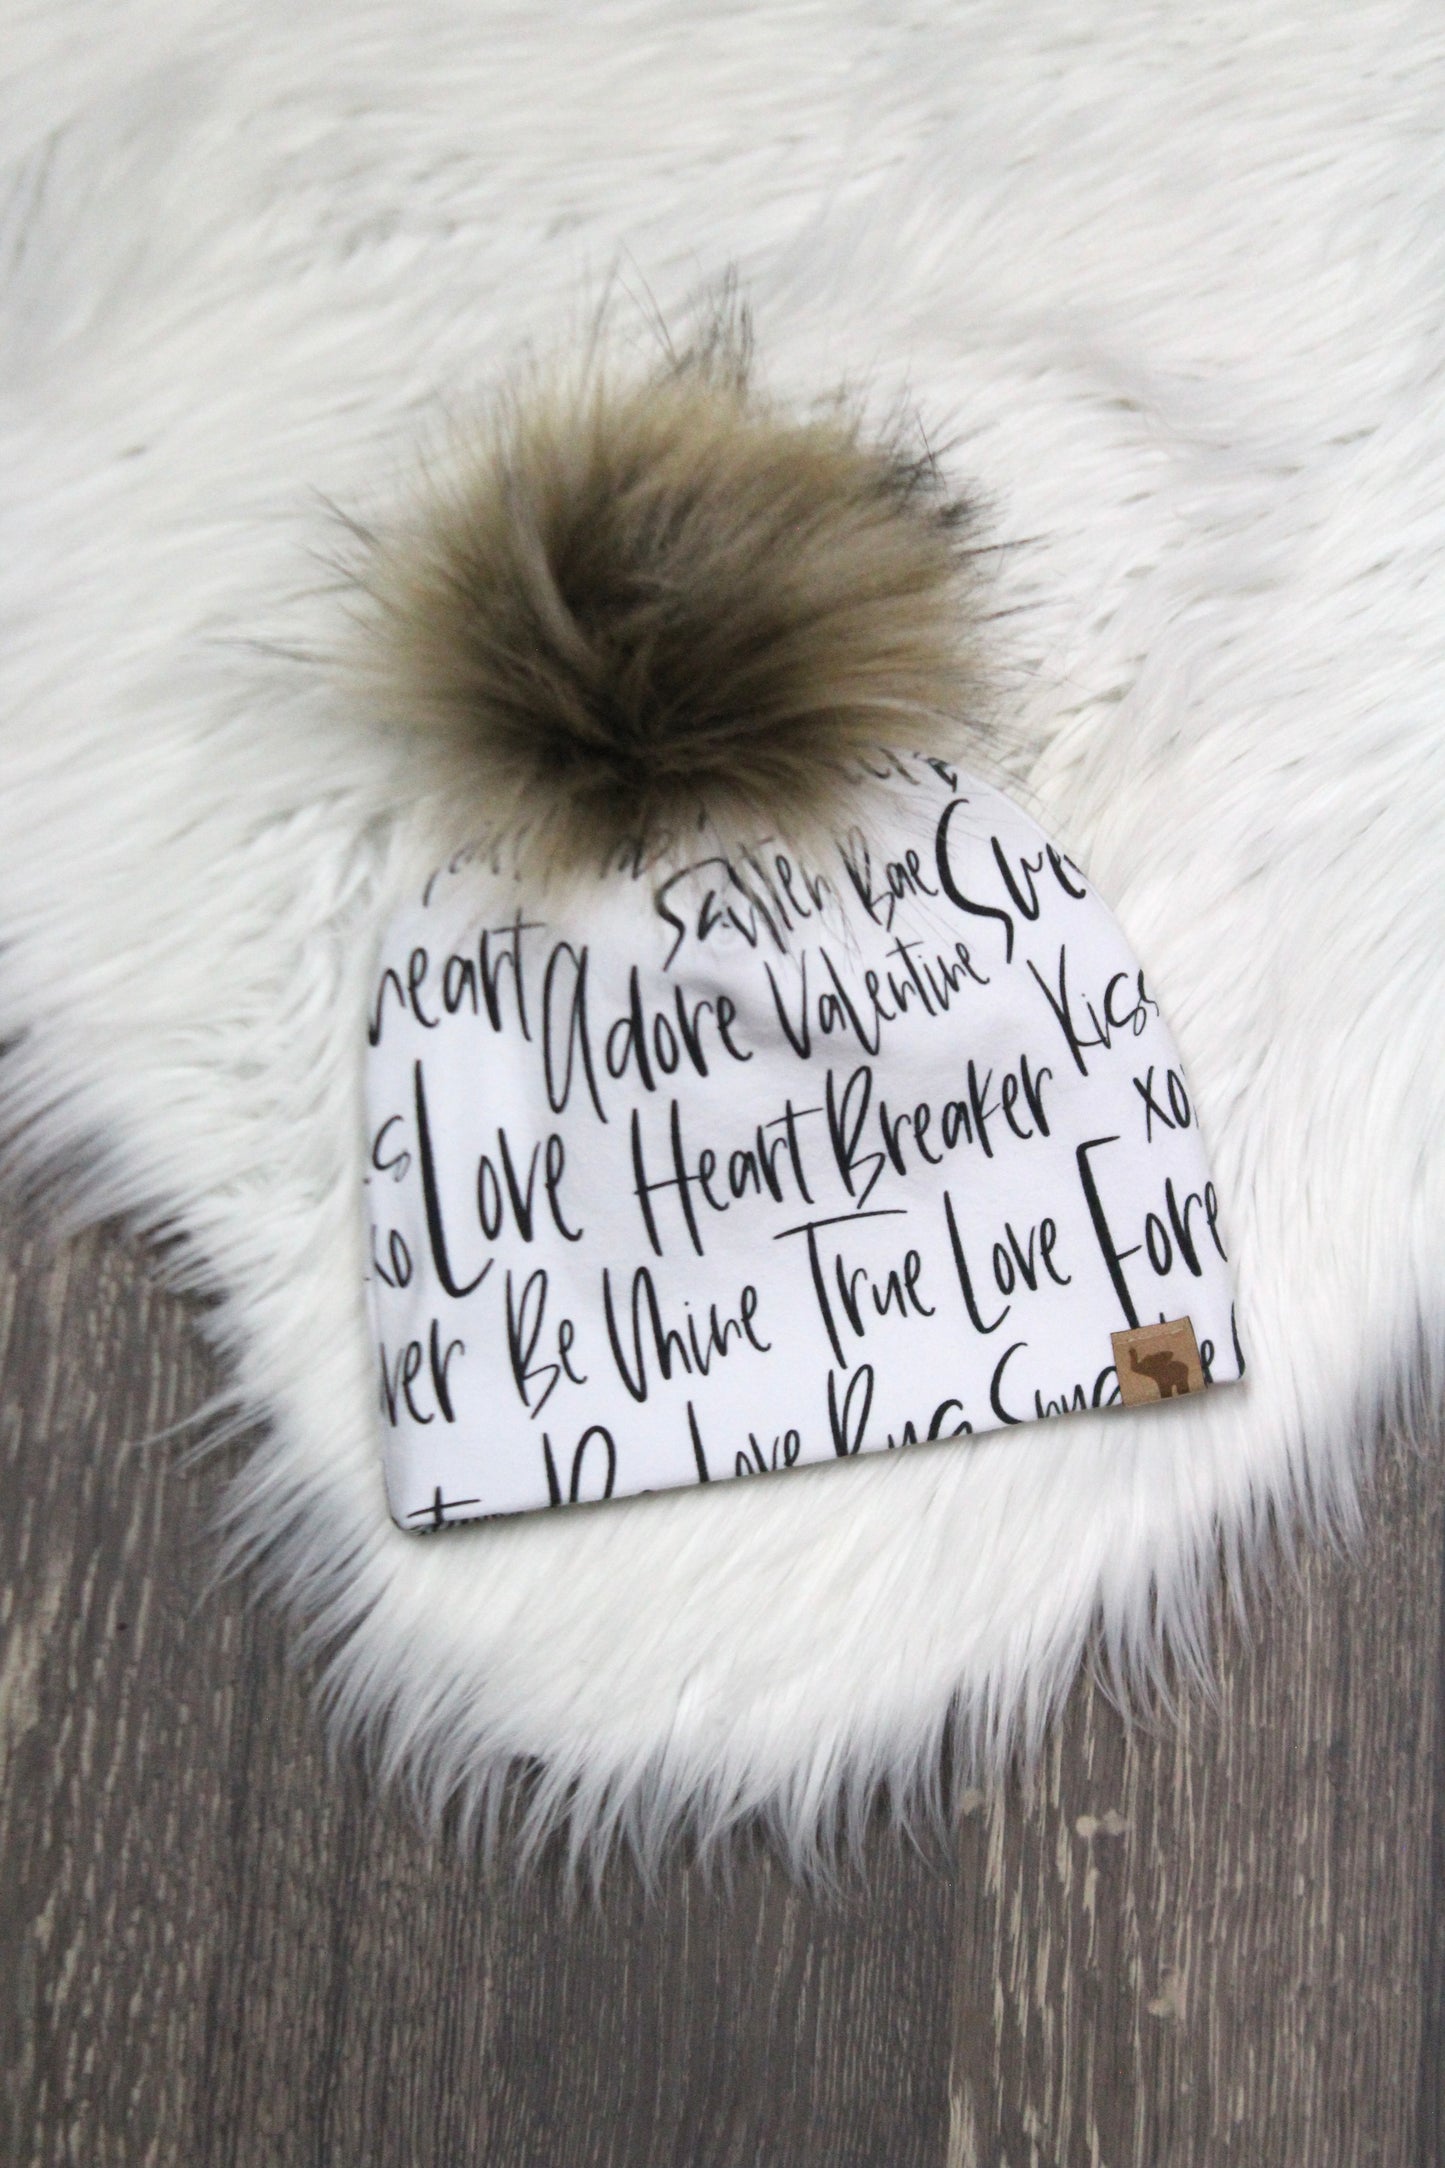 Bae Swe
heart Adore Valentine Kiss
Love HeartBreaker xo
xo
ver Be Mine True Love Fore
Love Bug Snug